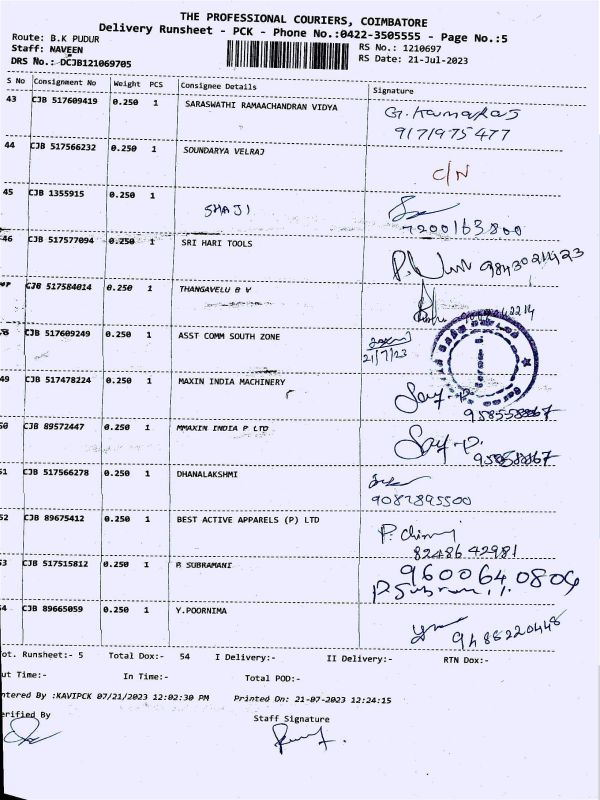 THE PROFESSIONAL COURIERS, COIMBATORE
Delivery Runsheet - PCK - Phone No.:0422-3505555 - Page No.:5
Route: B.K PUDUR
Staff: NAVEEN
RS No.: 1210697
DRS No.: DCJB121069705
RS Date: 21-Jul-2023
S No Consignment No Weight PCS Consignee Details Signature
43 CJB 517609419 0.250 1 SARASWATHI RAMAACHANDRAN VIDYA
9171975477
44 CJB 517566232 0.250 1 SOUNDARYA VELRAJ
C/N
45 CJB 1355915 0.250 1
SHAJI
7200163800
46 CJB 517577094 0.250 1 SRI HARI TOOLS
CJB 517584014 0.250 1 THANGAVELU B V
CJB 517609249 0.250 1 ASST COMM SOUTH ZONE
21/7/23
49 CJB 517478224 0.250 1 MAXIN INDIA MACHINERY
50 CJB 89572447 0.250 1 MMAXIN INDIA P LTD
51 CJB 517566278 0.250 1 DHANALAKSHMI
9087895500
52 CJB 89675412 0.250 1 BEST ACTIVE APPARELS (P) LTD
8248642981
53 CJB 517515812 0.250 1 P. SUBRAMANI
9600640804
54 CJB 89665059 0.250 1 Y.POORNIMA
9488220448
Tot. Runsheet:- 5 Total Dox:- 54 I Delivery:- II Delivery:- RTN Dox:-
Out Time:- In Time:- Total POD:-
Entered By :KAVIPCK 07/21/2023 12:02:30 PM Printed On: 21-07-2023 12:24:15
Verified By
Staff Signature